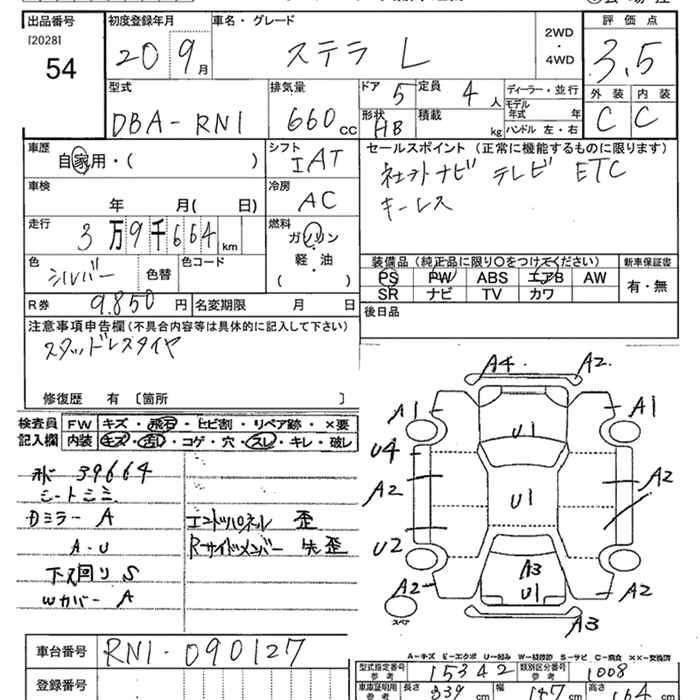 出品番号 初度登録年月 車名・グレード 評価点
[2028] 54
20 9月 ステラ L 2WD・4WD 3.5
型式 排気量 ドア 5 定員 4人 ディーラー・並行 外装 内装
DBA-RN1 660cc 形状 HB 積載 kg モデル年式 年 C C
ハンドル 左・右
車歴 シフト セールスポイント(正常に機能するものに限ります)
自家用・( ) IAT 社外ナビ テレビ ETC
車検 冷房 キーレス
年 月( 日) AC
走行 燃料
3万9千664km ガソリン
軽・油
( )
色 色替 色コード 装備品(純正品に限り〇をつけてください) 新車保証書
シルバー PS PW ABS エアB AW 有・無
SR ナビ TV カワ
R券 9.850円 名変期限 月 日 後日品
注意事項申告欄(不具合内容等は具体的に記入して下さい)
スタッドレスタイヤ
修復歴 有〔箇所 〕
検査員記入欄 FW キズ・飛石・ヒビ割・リペア跡・×要
内装 キズ・汚レ・コゲ・穴・スレ・キレ・破レ
39664
シートシミ
Dミラー A エンドパネル 歪
A・U Rサイドメンバー 先歪
下ス回り S
Wカバー A
A4 A2
A1 U1 A1
U4
A2 U1 A2
U2
A2 A3 A2
U1
スペア A3
A=キズ E=エクボ U=凹み W=補修跡 S=サビ C=腐食 ××=交換済
車台番号 RN1-090127
登録番号
型式指定番号 参考 15342 類別区分番号 参考 1008
車庫証明用 参考 長さ 339cm 幅 147cm 高さ 164cm